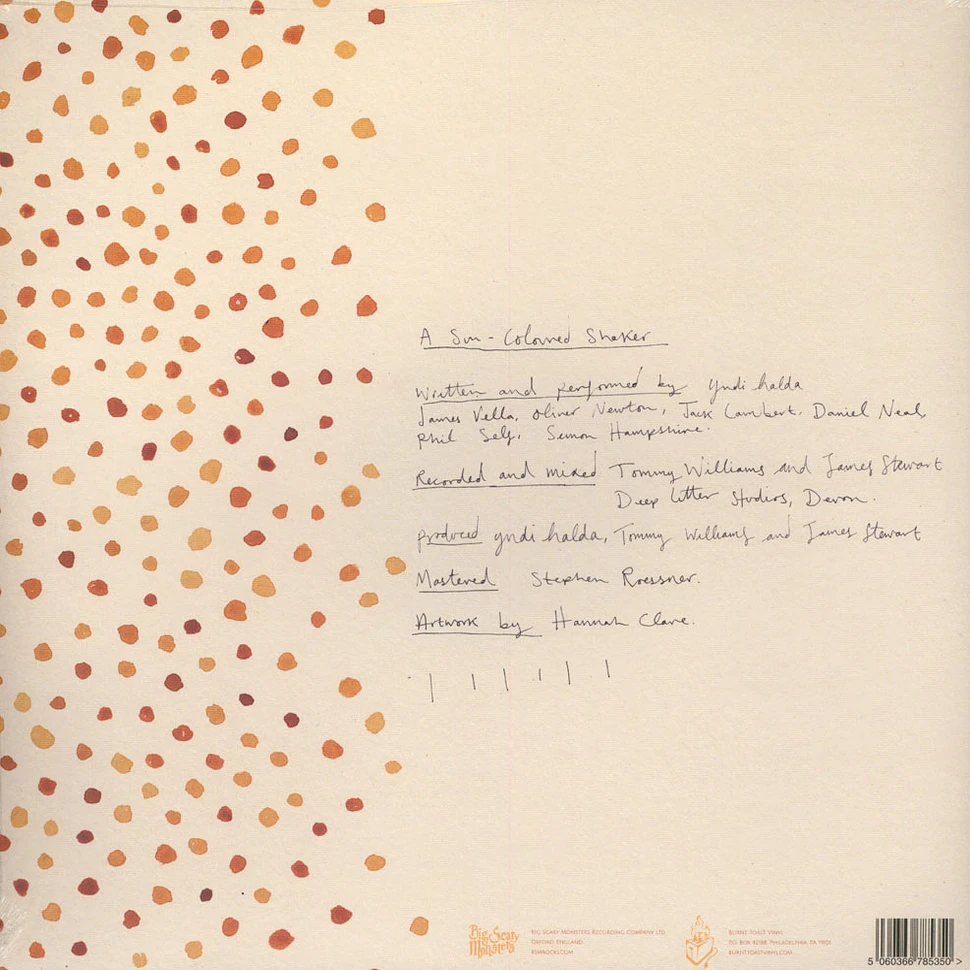 A Sun-Coloured Shaker
Written and performed by yndi halda
James Vella, Oliver Newton, Jack Lambert, Daniel Neal,
Phil Self, Simon Hampshire.
Recorded and mixed Tommy Williams and James Stewart
Deep Litter Studios, Devon.
produced yndi halda, Tommy Williams and James Stewart
Mastered Stephen Roessner.
Artwork by Hannah Clare.
Big Scary Monsters
BIG SCARY MONSTERS RECORDING COMPANY LTD
OXFORD, ENGLAND
BSMROCKS.COM
BURNT TOAST VINYL
P.O. BOX 42188 PHILADELPHIA, PA 19101
BURNTTOASTVINYL.COM
5 060366 785350 >